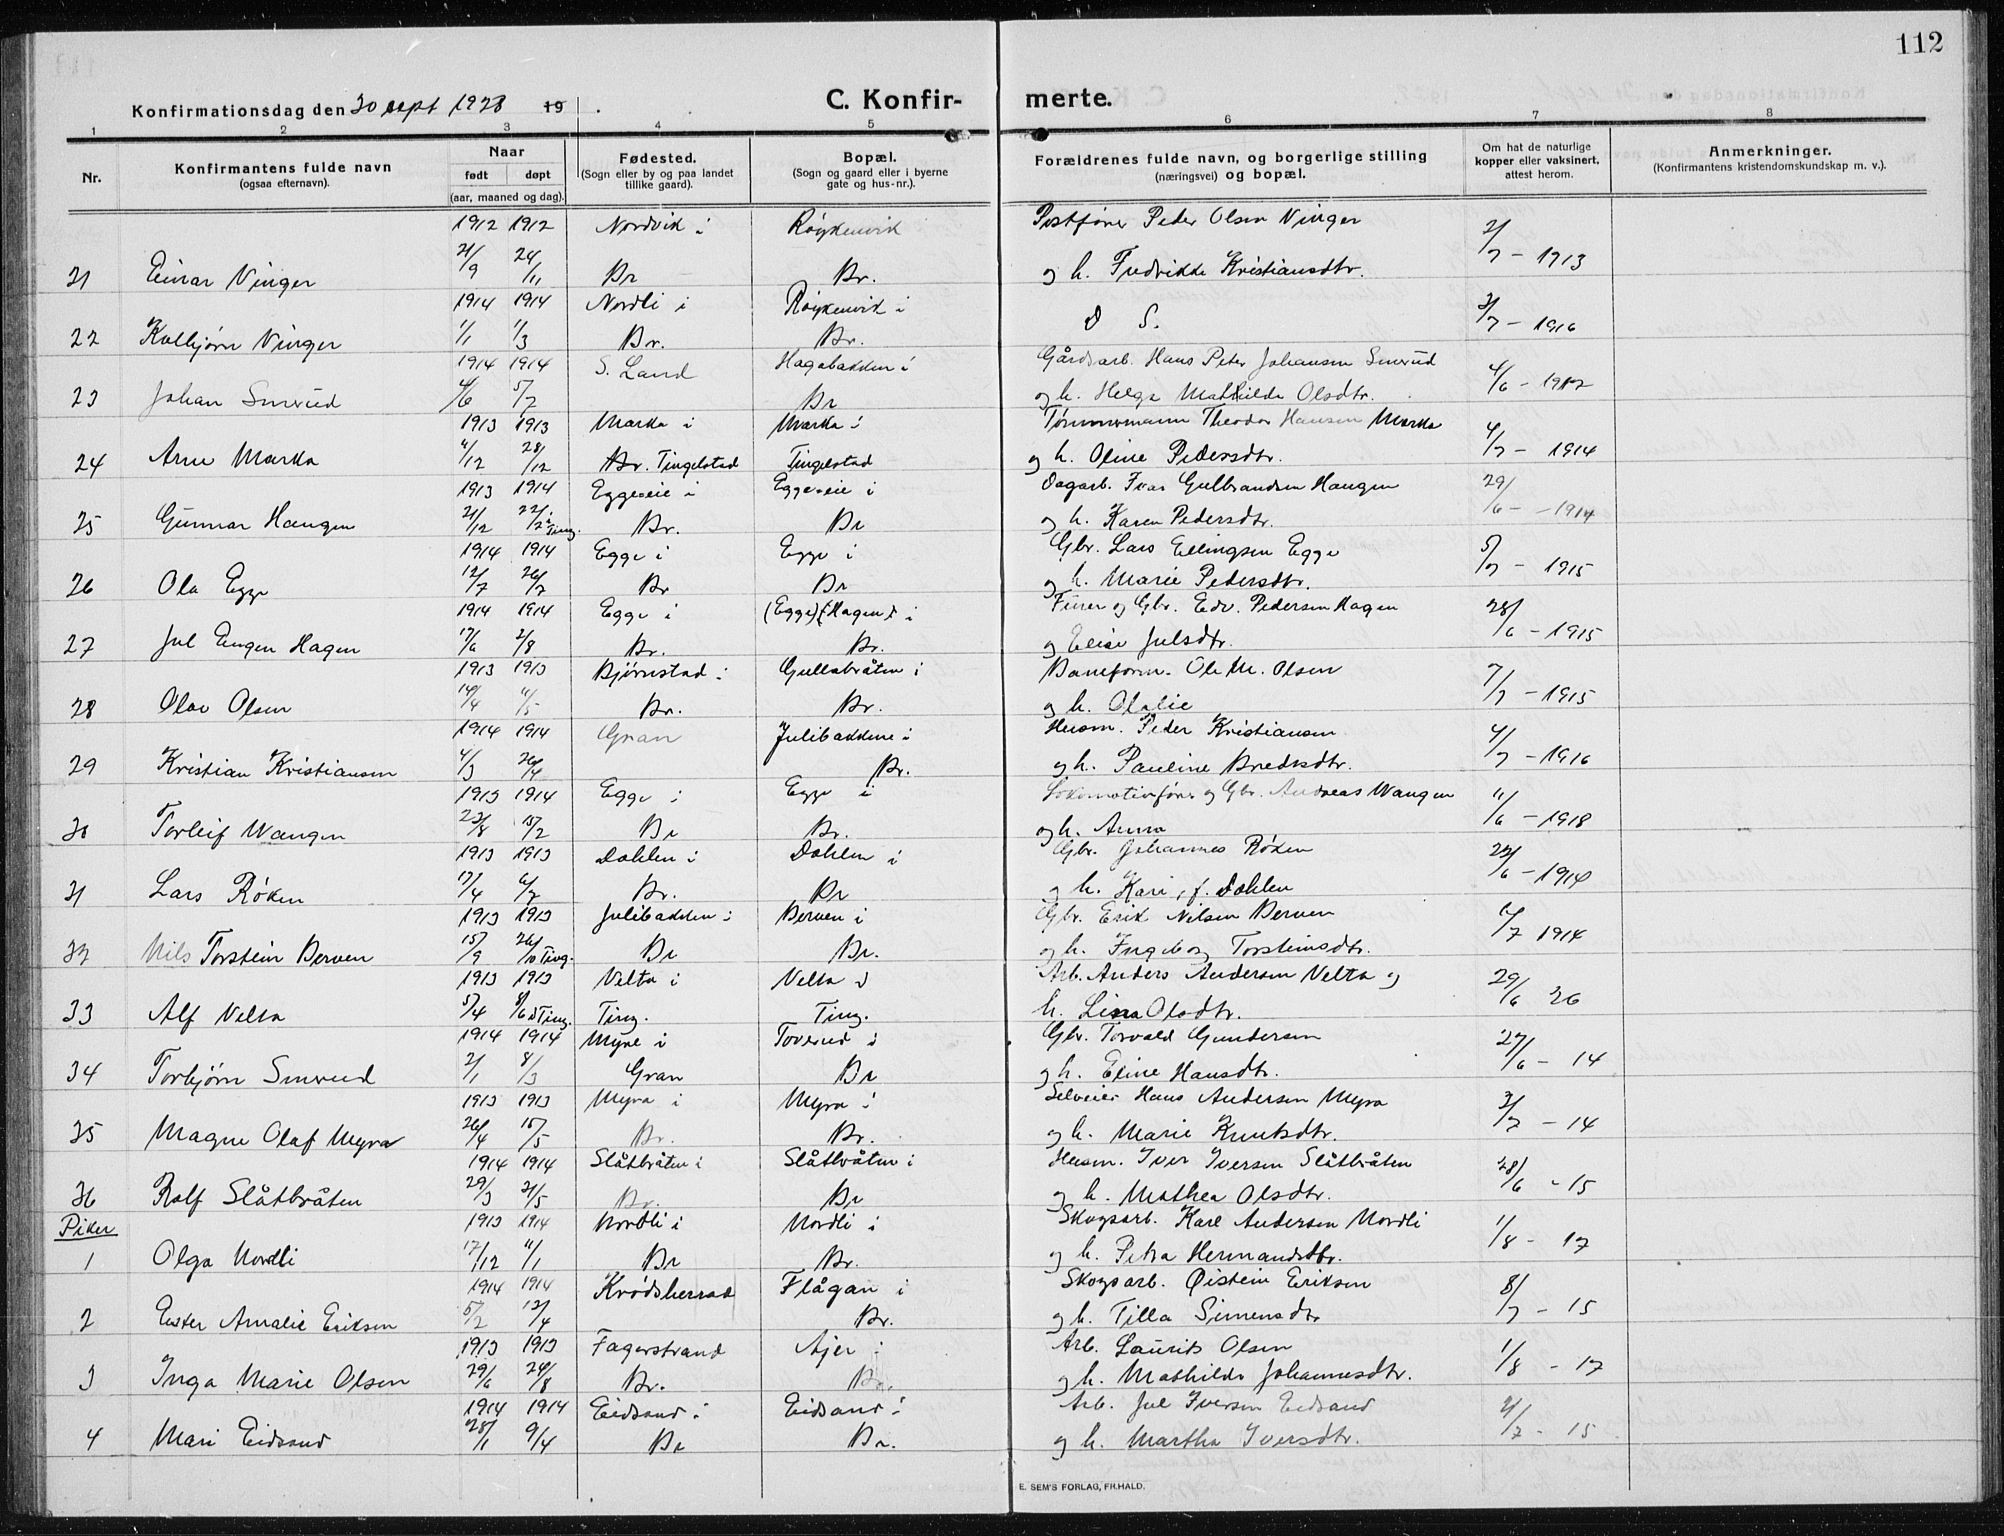 112
Konfirmationsdag den 30 sept 1928 19
C. Konfir- merte.
1 2 3 4 5 6 7 8
Nr.
Konfirmantens fulde navn
(ogsaa efternavn).
Naar
født døpt
(aar, maaned og dag).
Fødested.
(Sogn eller by og paa landet
tillike gaard).
Bopæl.
(Sogn og gaard eller i byerne
gate og hus-nr.).
Forældrenes fulde navn, og borgerlige stilling
(næringsvei) og bopæl.
Om hat de naturlige
kopper eller vaksinert,
attest herom.
Anmerkninger.
(Konfirmantens kristendomskundskap m. v.).
1912 1912 Nordvik i Røykenvik Postfører Peder Olsen Vinger
21 Einar Vinger 21/9 24/11 Br Br. og h. Fredrikke Kristiansdtr. 2/7 - 1913
1914 1914 Nordli i Røykenvik i
22 Kolbjørn Vinger 1/1 1/3 Br. Br. D S. 3/7 - 1916
1914 1914 S. Land Hagabakken i Gårdsarb. Hans Peter Johansen Smerud
23 Johan Smerud 4/6 5/7 Br og h. Helga Mathilde Olsdtr. 4/6 - 1912
1913 1913 Marka i Marka i Tømmermann Theodor Hansen Marka
24 Arne Marka 4/12 28/12 Br. Tingelstad Tingelstad og h. Oline Pedersdtr. 4/7 - 1914
1913 1914 Eggeeie i Eggeeie i Dagarb. Ivar Gulbrandsen Haugen
25 Gunnar Haugen 21/12 22/2 i Ting. Br. Br og h. Karen Pedersdtr. 29/6 - 1914
1914 1914 Egge i Egge i Gbr. Lars Ellingsen Egge
26 Ola Egge 12/7 26/7 Br Br og h. Marie Pedersdtr. 5/7 - 1915
1914 1914 Egge i (Egge) (Hagen) i Furer og Gbr. Edv. Pedersen Hagen
27 Jul Eugen Hagen 17/6 2/8 Br. Br. og Elise Julsdtr. 28/6 - 1915
1913 1913 Bjørnstad i Gullabråten i Baneform. Ole M. Olsen
28 Olav Olsen 14/4 11/5 Br. Br. og h. Olalie 7/7 - 1915
1914 1914 Gran Julibakkene i Husm. Peder Kristiansen
29 Kristian Kristiansen 4/3 26/4 Br. og h. Pauline Bredesdtr. 4/7 - 1916
1913 1914 Egge i Egge i Lokomotivfører og Gbr. Andreas Wangen
30 Torleif Wangen 23/8 15/2 Br Br. og h. Anna 11/6 - 1918
1913 1913 Dahlen i Dahlen i Gbr. Johannes Røken
31 Lars Røken 17/4 6/7 Br. Br og h. Kari, f. Dahlen 22/6 - 1914
1913 1913 Julibakken i Berven i Gbr. Erik Nilsen Berven
32 Nils Torstein Berven 15/9 26/10 Ting. Br Br. og h. Ingeborg Torsteinsdtr. 14/7 1914
1913 1913 Velta i Velta i Arb. Anders Andersen Velta og
33 Alf Velta 5/4 8/6 i Ting. Ting. Ting. h. Lina Olsdtr. 29/6 26
1914 1914 Myre i Toverud i Gbr. Torvald Gundersen
34 Torbjørn Smerud 2/1 8/3 Gran Br og h. Eline Hansdtr. 27/6 - 14
1913 1913 Myra i Myra i Selveier Hans Andersen Myra
35 Magne Olaf Myra 26/4 15/5 Br. Br. og h. Marie Knutsdtr. 3/7 - 14
1914 1914 Slåtbråten i Slåtbråten i Husm. Iver Iversen Slåtbråten
36 Rolf Slåtbråten 29/3 21/5 Br. Br og h. Mathea Olsdtr. 28/6 - 15
Piker 1913 1914 Nordli i Nordli i Skogsarb. Karl Andersen Nordli
1 Olga Nordli 17/12 11/1 Br Br. og h. Petra Hermansdtr. 1/8 - 17
1914 1914 Krødsherrad Flågan i Skogsarb. Øistein Eriksen
2 Ester Amalie Eriksen 5/2 12/4 Br. og h. Tilla Simensdtr 8/7 - 15
1913 1913 Fagerstrand Ajer i Arb. Laurits Olsen
3 Inga Marie Olsen 29/6 24/8 Br. Br. og h. Mathilde Johannesdtr. 1/8 - 17
1914 1914 Eidsand i Eidsand i Arb. Jul Iversen Eidsand
4 Mari Eidsand 28/1 9/4 Br Br. og h. Martha Iversdtr. 2/7 - 15
E. SEM'S FORLAG, FR.HALD.